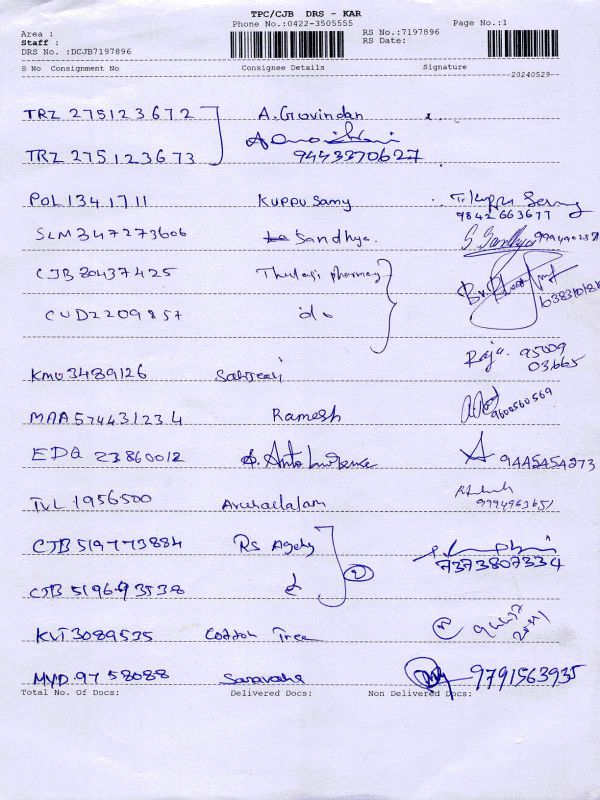 TPC/CJB DRS - KAR
Area : Phone No.:0422-3505555 Page No.:1
Staff : RS No.:7197896
DRS No. :DCJB7197896 RS Date:
S No Consignment No Consignee Details Signature
20240529
TRZ 275123672 A. Govindan
TRZ 275123673 9443270627
POL 1341711 Kuppu Samy
9842663677
SLM 347273606 Sandhya. S. Sandhya
CJB 80437425 Thulasi pharmacy
CUD2209857 do
Raja. 95009
03665
KMU 3489126
MAA 574431234 Ramesh 9600560569
EDQ 23860012 Anto Lawrence 9445454273
TVL 1956500 Arunachalam
CJB 519773884 RS Agency 7373807334
CJB 519693538 2
KVT 3089535 Cotton Tree
MYD 9758088 Saravana 9791563935
Total No. Of Docs: Delivered Docs: Non Delivered Docs: